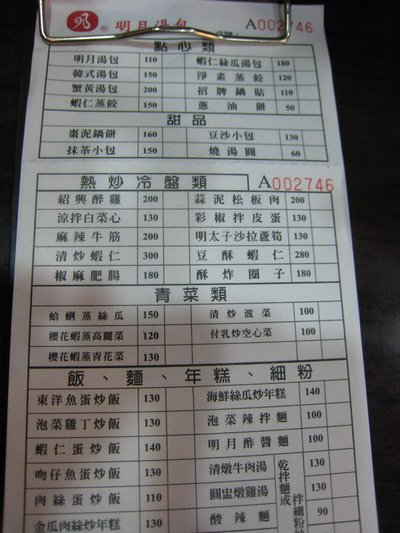 明月湯包 A002746
點心類
明月湯包 110 蝦仁絲瓜湯包 180
韓式湯包 150 淨素蒸餃 120
蟹黃湯包 200 招牌鍋貼 110
蝦仁蒸餃 150 蔥油餅 50
甜品
棗泥鍋餅 160 豆沙小包 130
抹茶小包 150 燒湯圓 60
熱炒冷盤類 A002746
紹興醉雞 200 蒜泥松板肉 200
涼拌白菜心 130 彩椒拌皮蛋 130
麻辣牛筋 200 明太子沙拉蘆筍 130
清炒蝦仁 300 豆酥蝦仁 280
椒麻肥腸 180 酥炸圈子 180
青菜類
蛤蜊蒸絲瓜 150 清炒菠菜 100
櫻花蝦蒸高麗菜 120 付乳炒空心菜 100
櫻花蝦蒸青花菜 130
飯、麵、年糕、細粉
東洋魚蛋炒飯 130 海鮮絲瓜炒年糕 140
泡菜雞丁炒飯 130 泡菜辣拌麵 100
蝦仁蛋炒飯 130 明月酢醬麵 100
吻仔魚蛋炒飯 130 清燉牛肉湯 乾拌麵或 130
肉絲蛋炒飯 110 圓盅燉雞湯 拌細粉 130
金瓜肉絲炒年糕 130 酸辣麵 90